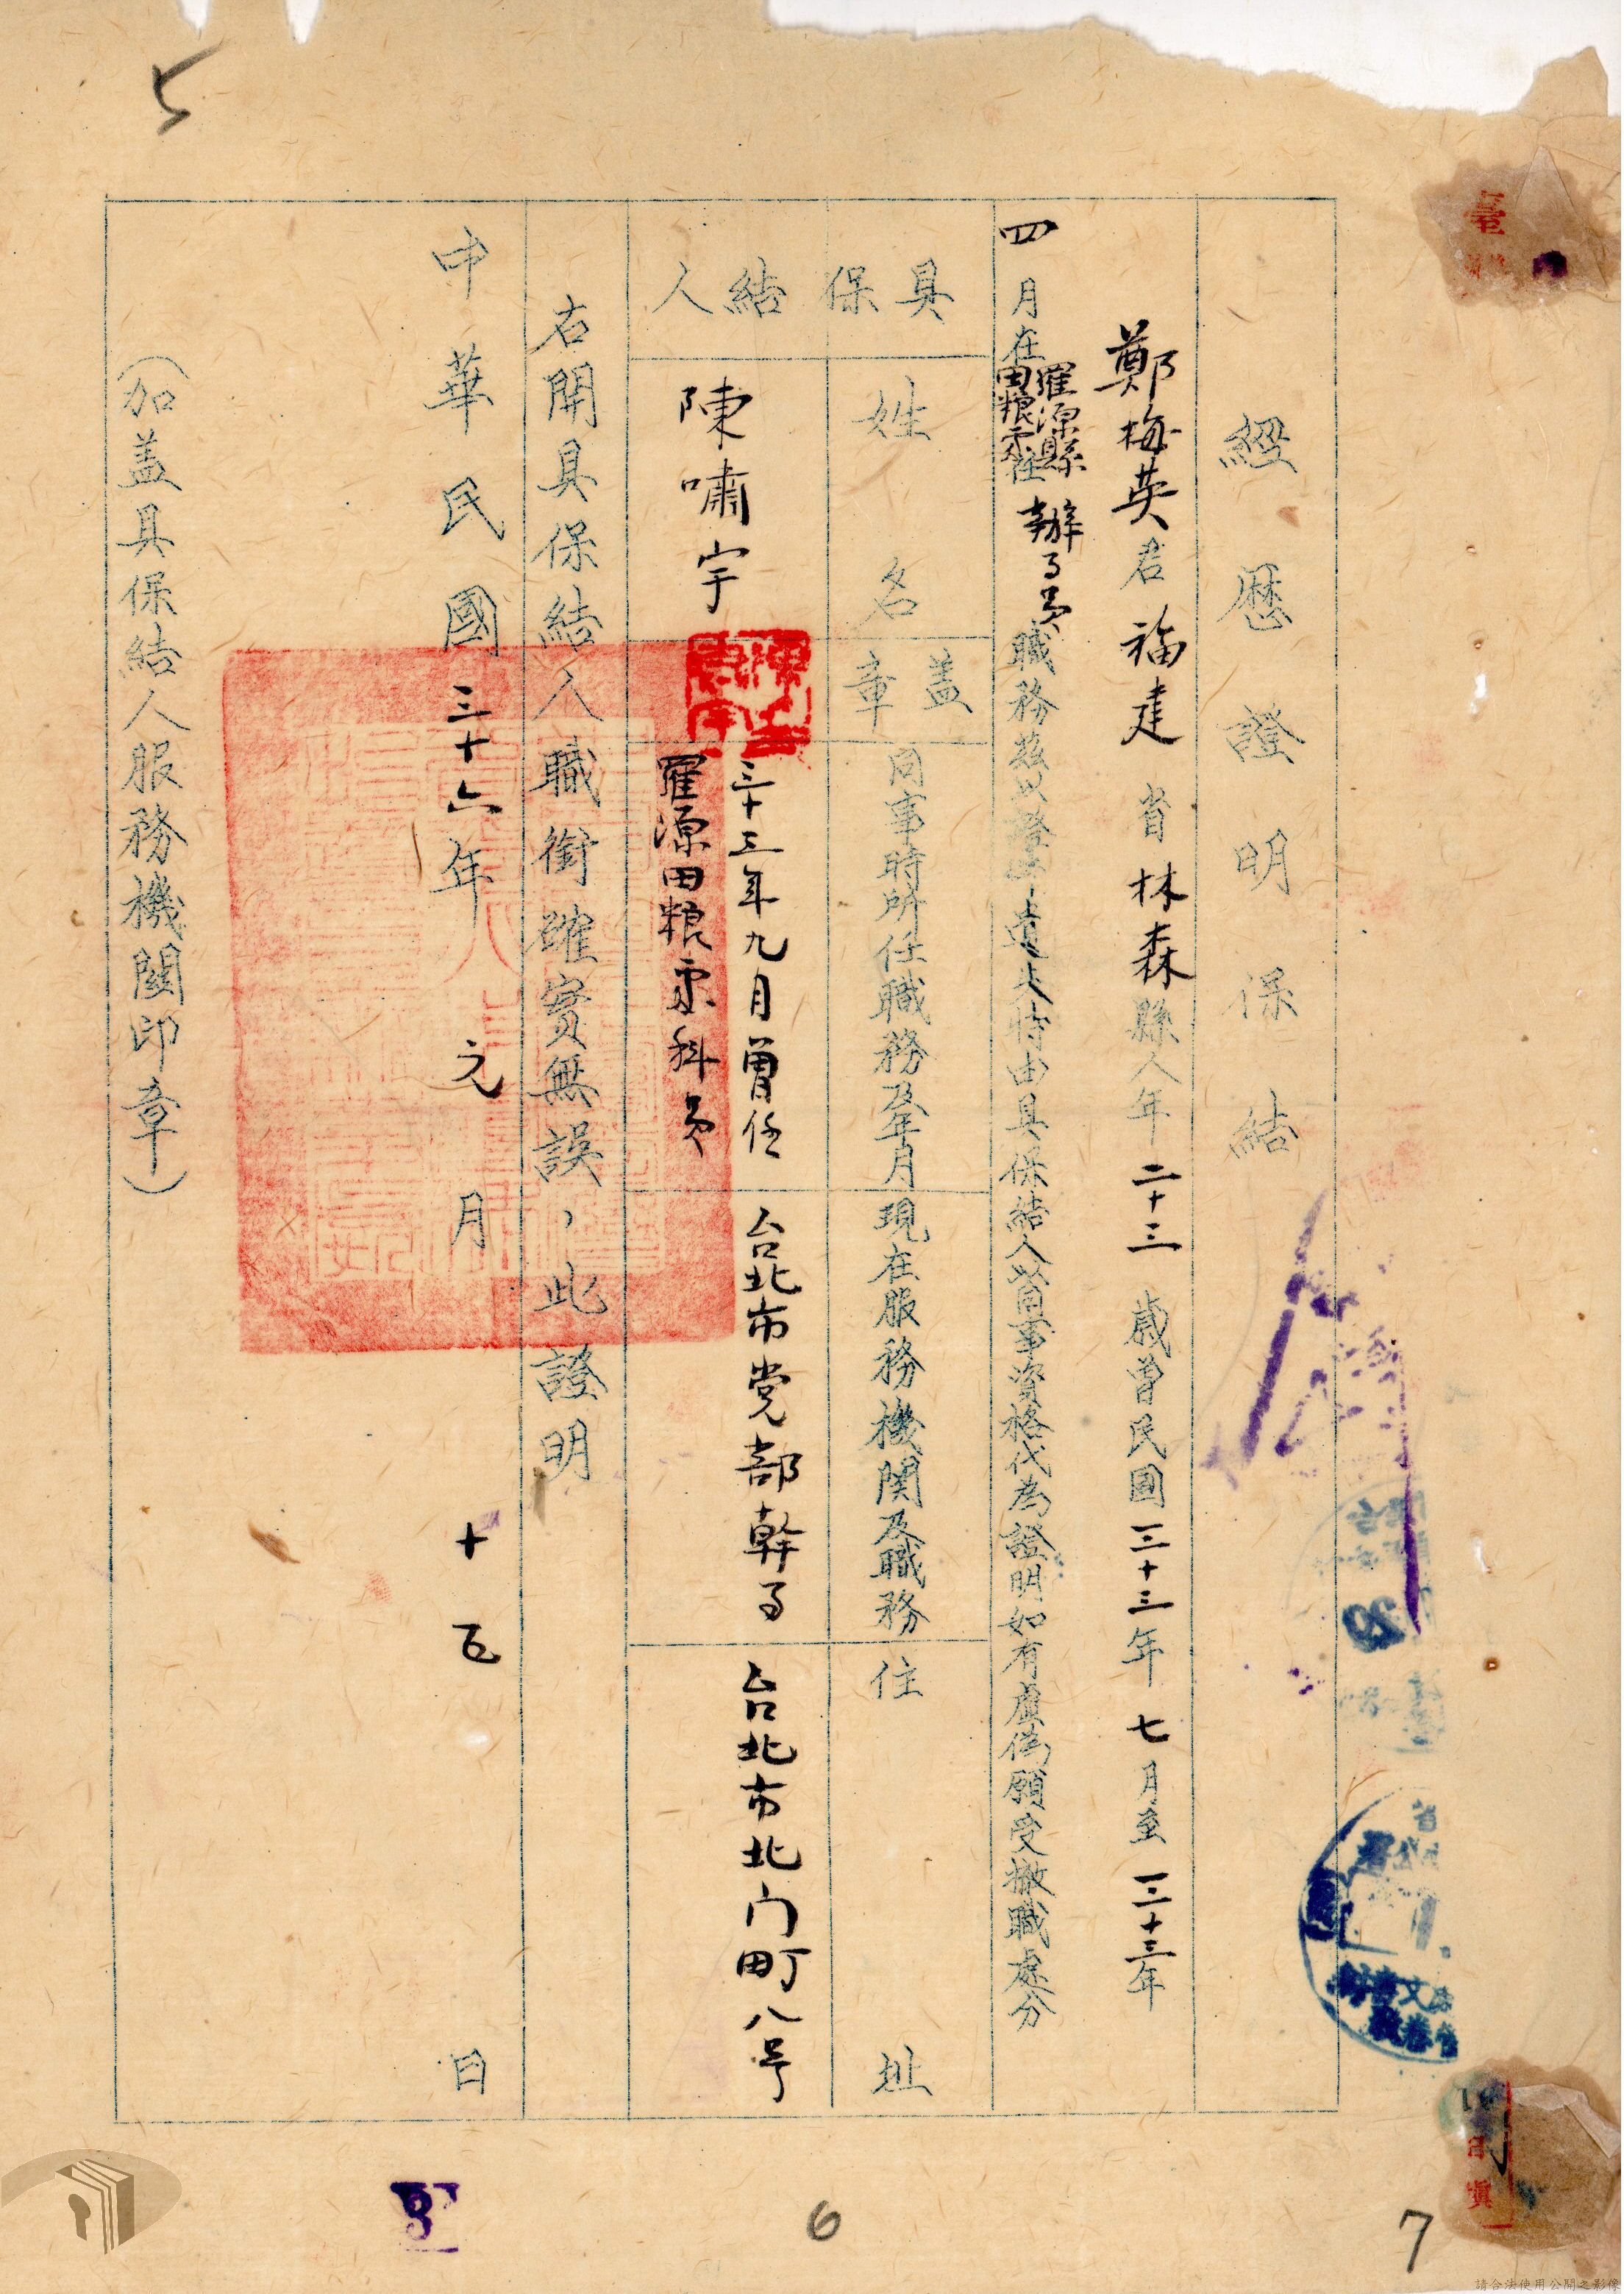 經歷證明保結
鄭梅英君福建省林森縣人年二十三歲曾民國三十三年七月至三十三年
四月在羅源縣田粮處任辦事員職務茲以證件遺失特由具保結人以同事資格代為證明如有虛偽願受撤職處分
具保結人
姓名
蓋章
同事時所任職務及年月
現在服務機関及職務
住址
陳嘯宇
三十三年九月曾任
羅源田粮處科員
台北市党部幹事
台北市北门町八号
右開具保結人職銜確實無誤，此證明
中華民國三十六年元月十五日
（加蓋具保結人服務機關印章）
5
20
6
7
請合法使用公開之影像